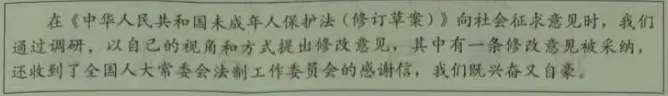 在《中华人民共和国未成年人保护法（修订草案）》向社会征求意见时，我们
通过调研，以自己的视角和方式提出修改意见，其中有一条修改意见被采纳，
还收到了全国人大常委会法制工作委员会的感谢信，我们既兴奋又自豪。